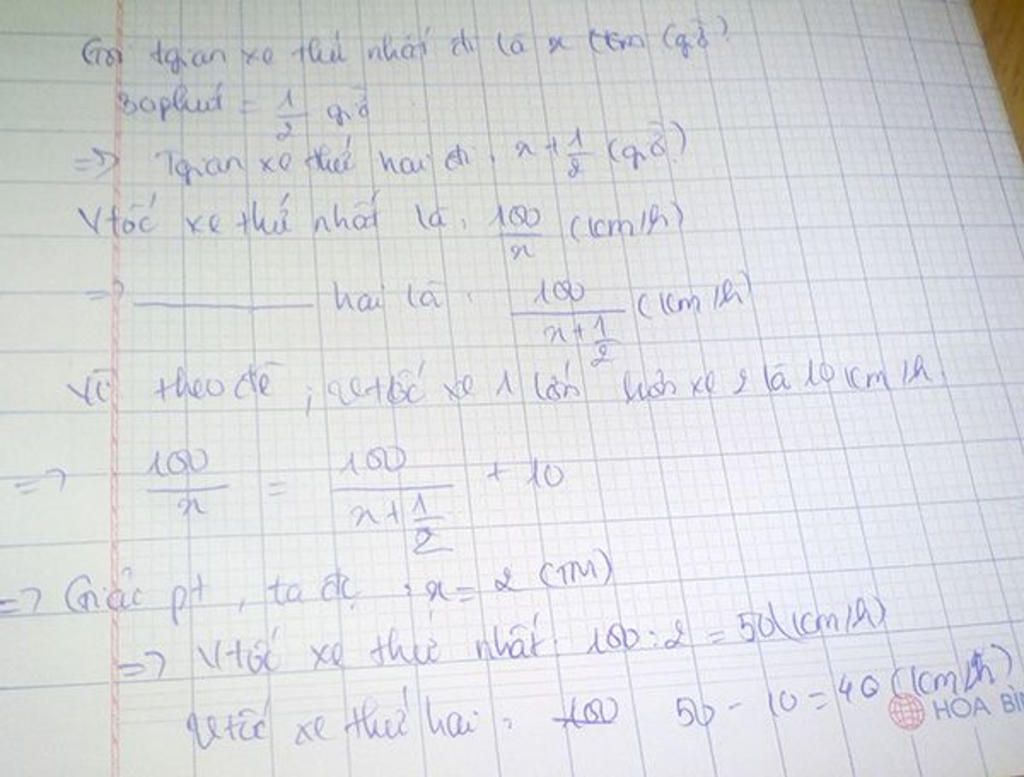 Gọi tgian xe thứ nhất đi là x (giờ)
30phút = 1/2 giờ
=> Tgian xe thứ hai đi: x + 1/2 (giờ)
Vtốc xe thứ nhất là: 100/x (km/h)
=> ———— hai là: 100/(x + 1/2) (km/h)
Vì theo đề; vtốc xe 1 lớn hơn xe 2 là 10 km/h
=> 100/x = 100/(x + 1/2) + 10
=> Giải pt, ta đc: x = 2 (TM)
=> Vtốc xe thứ nhất: 100 : 2 = 50 (km/h)
vtốc xe thứ hai: 100 50 - 10 = 40 (km/h)
HOA BÌN